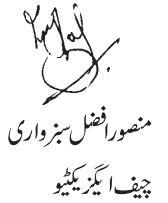 منصور افضل سبزواری
چیف ایگزیکٹیو